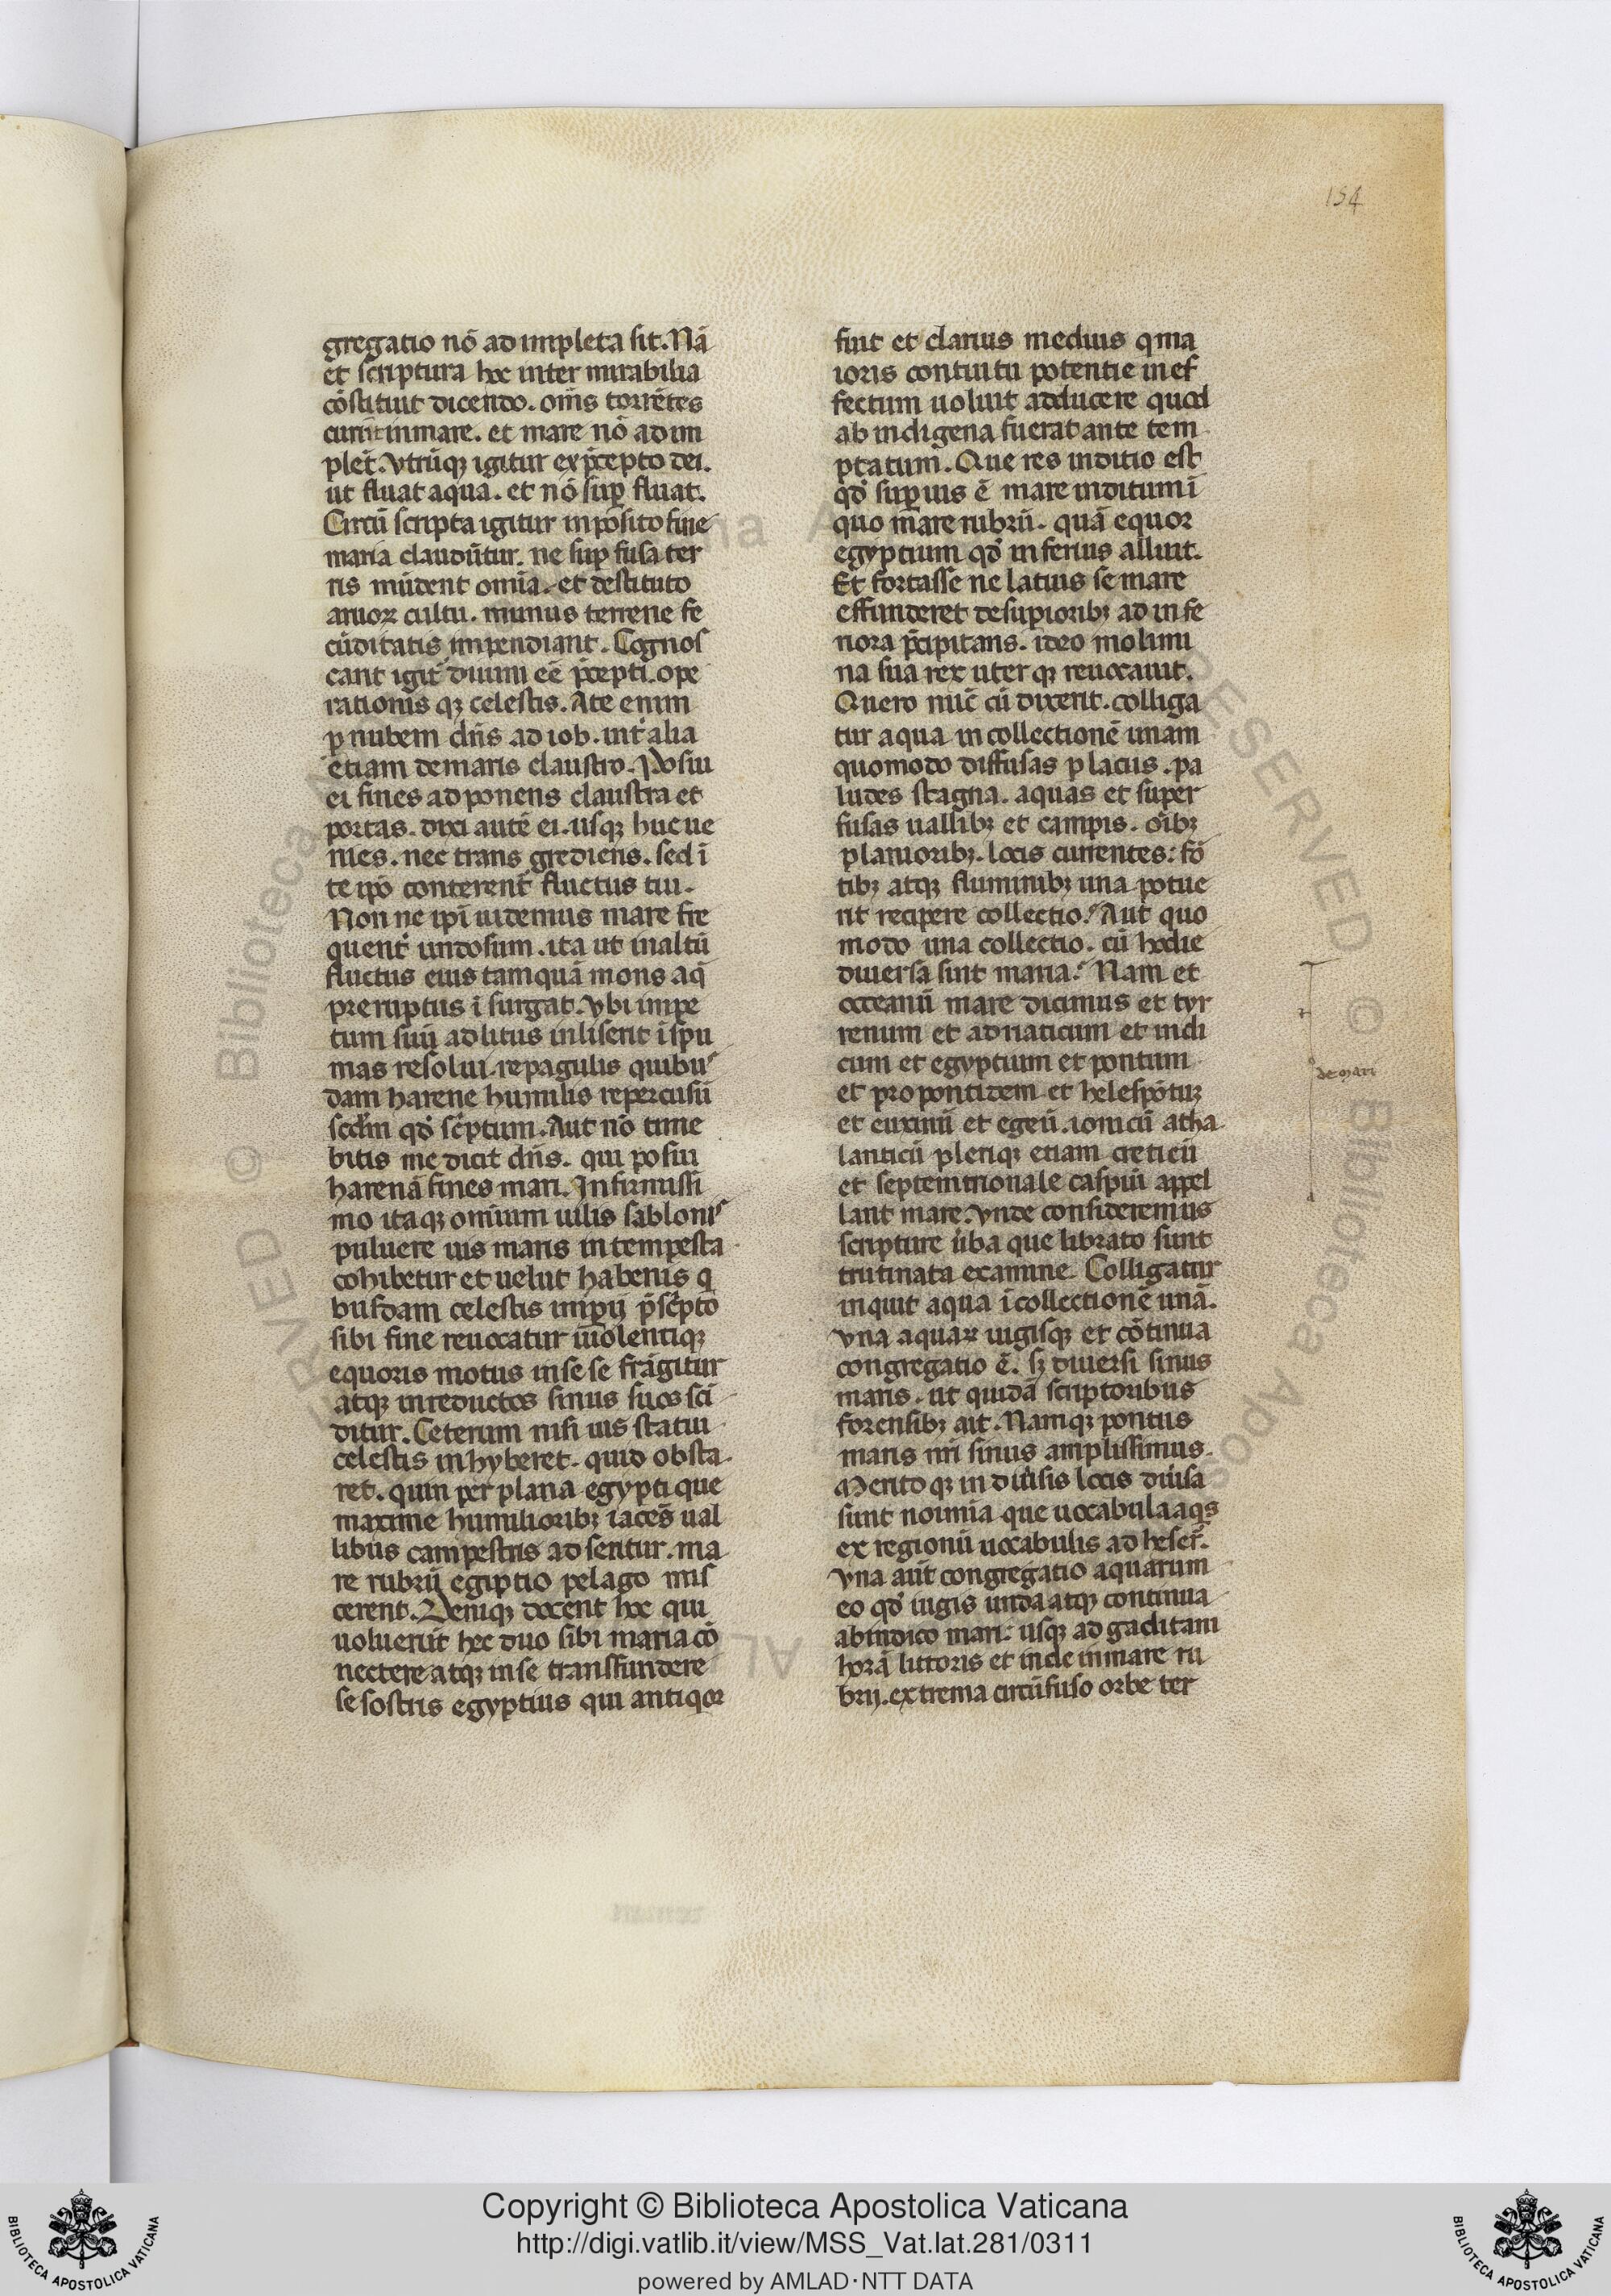 154
gregatio nō ad impleta sit. Nā
et scriptura hoc inter mirabilia
cōstituit dicendo. om̄s torrētes
currūt in mare. et mare nō ad im
plet̄. Vtrūqꝫ igitur ex p̄cepto dei.
ut fluat aqua. et nō suꝑ fluat.
Circū scripta igitur in posito fine
maria claudūtur. ne suꝑ fusa ter
ris inūdent omīa. et destituto
aruoꝝ cultu. munus terrene fe
cūditatis impendiant. Cognos
cant igit᷑ diuini eē p̄cepti. ope
rationis qꝫ celestis. Ate enim
ꝑ nubem dn̄s ad iob. int᷑ alia
etiam de maris claustro. Posui
ei fines ad ponens claustra et
portas. dixi autē ei. usqꝫ huc ue
nies. nec trans gredieris. sed ī
te ip̄o conterent᷑ fluctus tui.
Non ne ip̄i uidemus mare fre
quent᷑ undosum. ita ut in altū
fluctus eius tamquā mons aq̄
preruptus ī surgat. Vbi impe
tum suū ad litus inliserit ī spu
mas resolui. repagulis quibus
dam harene humilis repercusū
scd̄m qd̓ sc̄ptum. Aut nō time
bitis me dicit dn̄s. qui posui
harenā fines mari. Infirmissi
mo itaqꝫ omīum uilis sablonis
puluere uis maris in tempesta
cohibetur et uelut habenis q
busdam celestis imꝑij p̄sc̄pto
sibi fine reuocatur uiolentiqꝫ
equoris motus in se se frāgitur
atqꝫ in reductos sinus suos sci
ditur. Ceterum nisi uis statui
celestis inhyberet. quid obsta
ret. quin per plana egypti que
maxime humilioribꝫ iacēs ual
libus campestris ad seritur. ma
re rubrū egiptio pelago mis
cerent. Deniqꝫ docent hoc qui
uoluerūt hec duo sibi maria cō
nectere atqꝫ in se transfundere
se sostris egyptius qui antiqoꝝ
fuit et clarius medius q ma
ioris contuitu potentie in ef
fectum uoluit adducere quod
ab indigena fuerat ante tem
ptatum. Que res inditio est
qd̓ suꝑius ē mare inditum ī
quo mare rubrū. quā equor
egyptium qd̓ inferius alluit.
Et fortasse ne latius se mare
effunderet de suꝑioribꝫ ad infe
riora p̄cipitans. ideo molimi
na sua rex uter qꝫ reuocauit.
Quero nūc cū dixerit. colliga
tur aqua in collectionē unam
quomodo diffusas ꝑ lacus. pa
ludes stagna. aquas et super
fusas uallibꝫ et campis. oībꝫ
planioribꝫ. locis currentes: fō
tibꝫ atqꝫ fluminibꝫ una potue
rit recipere collectio. Aut quo
modo una collectio. cū hodie
diuersa sint maria. Nam et
occeanū mare dicimus et tyr
renum et adriaticum et indi
cum et egyptium et pontum
et propontidem et helespōtuꝫ
et euxinū et egeū. ionicū atha
lanticū pleriqꝫ etiam creticū
et septemtrionale caspiū appel
lant mare. Vnde consideremus
scripture ūba que librato sunt
trutinata examine. Colligatur
inquit aqua ī collectionē unā.
Vna aquaꝝ iugisqꝫ et cōtinua
congregatio ē. sꝫ diuersi sinus
maris. ut quidā scriptoribus
forensibꝫ ait. Namqꝫ pontus
maris nr̄i sinus amplissimus.
Merito qꝫ in diūsis locis diūsa
sunt noīmia que uocabula aqs
ex regionū uocabulis ad heser̄.
Vna aūt congregatio aquarum
eo qd̓ iugis unda atqꝫ continua
ab indico mari: usqꝫ ad gaditani
horā littoris et inde in mare ru
brij. extrema circūfuso orbe ter
de mari
Copyright © Biblioteca Apostolica Vaticana
http://digi.vatlib.it/view/MSS_Vat.lat.281/0311
powered by AMLAD·NTT DATA
BIBLIOTECA APOSTOLICA VATICANA
BIBLIOTECA APOSTOLICA VATICANA